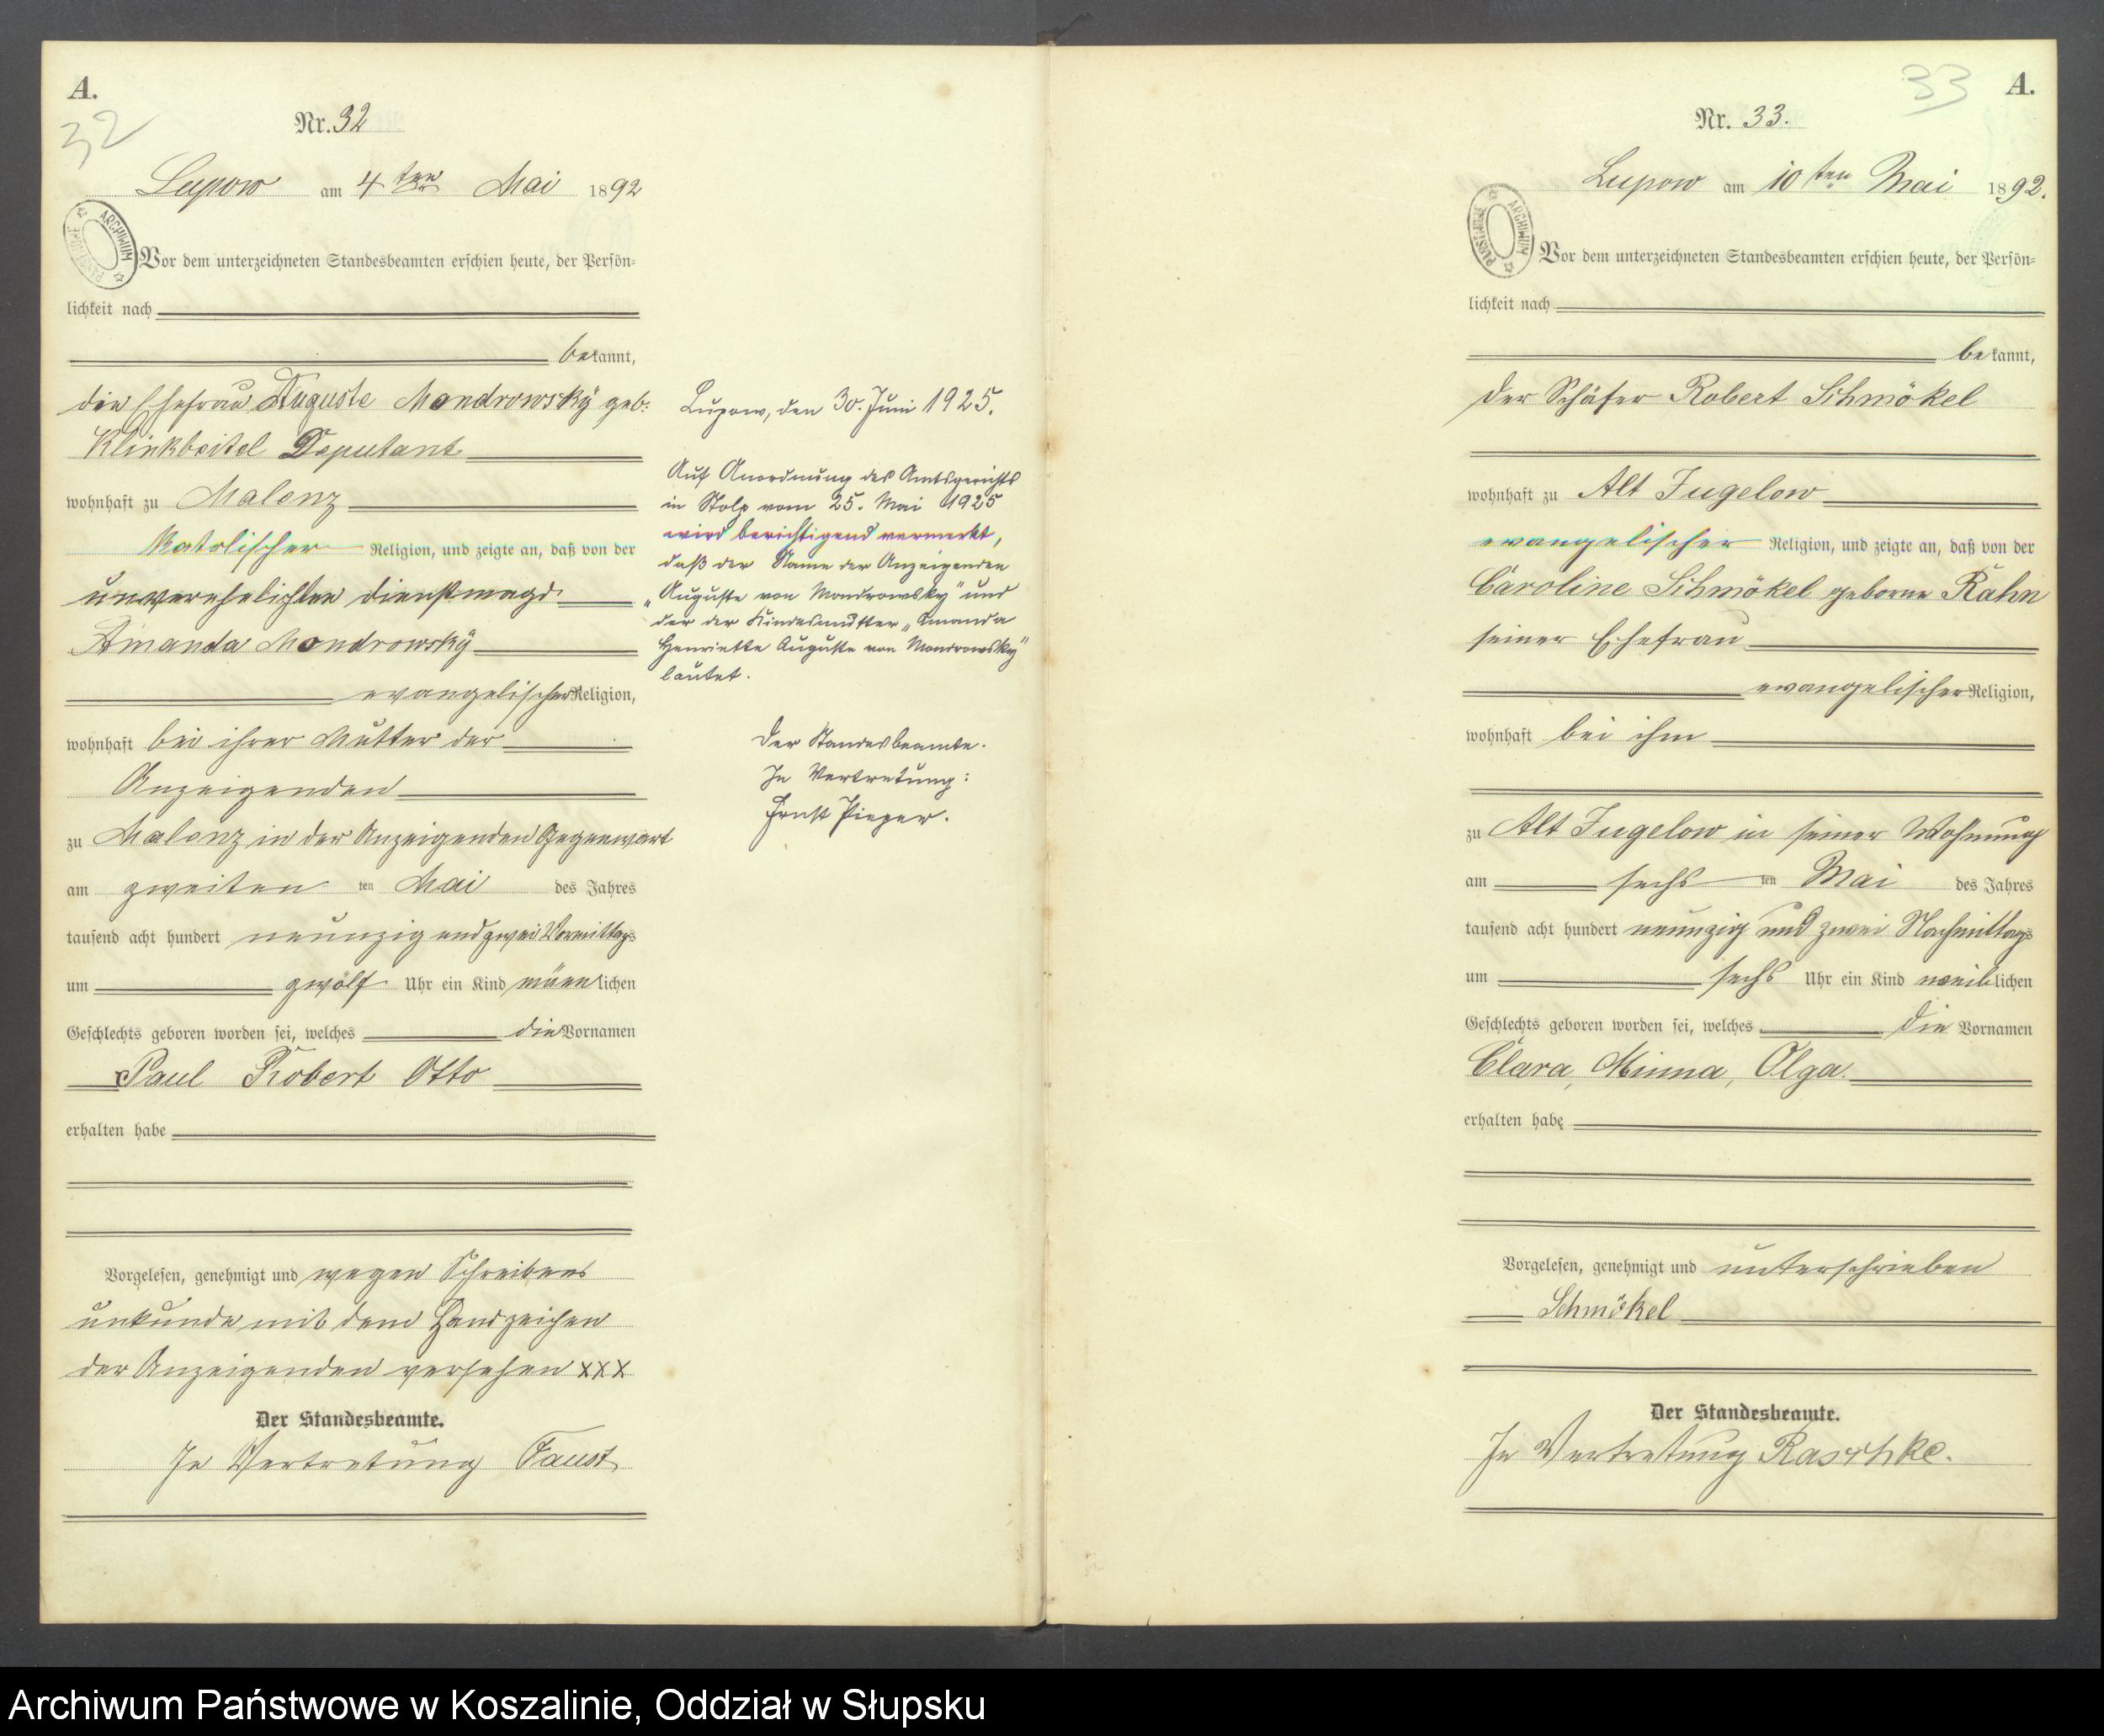 A.
32
Nr. 32
Lupow am 4ten Mai 1892
ARCHIWUM PAŃSTWOWE
Vor dem unterzeichneten Standesbeamten erschien heute, der Persön=
lichkeit nach
bekannt,
die Ehefrau Auguste Mondrowsky geb:
Klinkbeitel Deputant
wohnhaft zu Malenz
katolischer Religion, und zeigte an, daß von der
unverehelichten Dienstmagd
Amanda Mondrowsky
evangelischer Religion,
wohnhaft bei ihrer Mutter der
Anzeigenden
zu Malenz in der Anzeigenden Gegenwart
am zweiten ten Mai des Jahres
tausend acht hundert neunzig und zwei Vormittags
um zwölf Uhr ein Kind männlichen
Geschlechts geboren worden sei, welches die Vornamen
Paul Robert Otto
erhalten habe
Vorgelesen, genehmigt und wegen Schreibens
unkunde mit dem Handzeichen
der Anzeigenden versehen XXX
Der Standesbeamte.
In Vertretung Faust
Lupow, den 30. Juni 1925.
Auf Anordnung des Amtsgerichts
in Stolp vom 25. Mai 1925
wird berichtigend vermerkt,
daß der Name der Anzeigenden
„Auguste von Mondrowsky" und
der der Kindesmutter „Amanda
Henriette Auguste von Mondrowsky"
lautet.
Der Standesbeamte.
In Vertretung:
Ernst Pieper.
33
A.
Nr. 33.
Lupow am 10ten Mai 1892.
ARCHIWUM PAŃSTWOWE
Vor dem unterzeichneten Standesbeamten erschien heute, der Persön=
lichkeit nach
bekannt,
der Schäfer Robert Schmökel
wohnhaft zu Alt Jugelow
evangelischer Religion, und zeigte an, daß von der
Caroline Schmökel geborne Rahn
seiner Ehefrau
evangelischer Religion,
wohnhaft bei ihm
zu Alt Jugelow in seiner Wohnung
am sechs ten Mai des Jahres
tausend acht hundert neunzig und zwei Nachmittags
um sechs Uhr ein Kind weiblichen
Geschlechts geboren worden sei, welches die Vornamen
Clara, Minna, Olga.
erhalten habe
Vorgelesen, genehmigt und unterschrieben
Schmökel
Der Standesbeamte.
In Vertretung Raschke.
Archiwum Państwowe w Koszalinie, Oddział w Słupsku